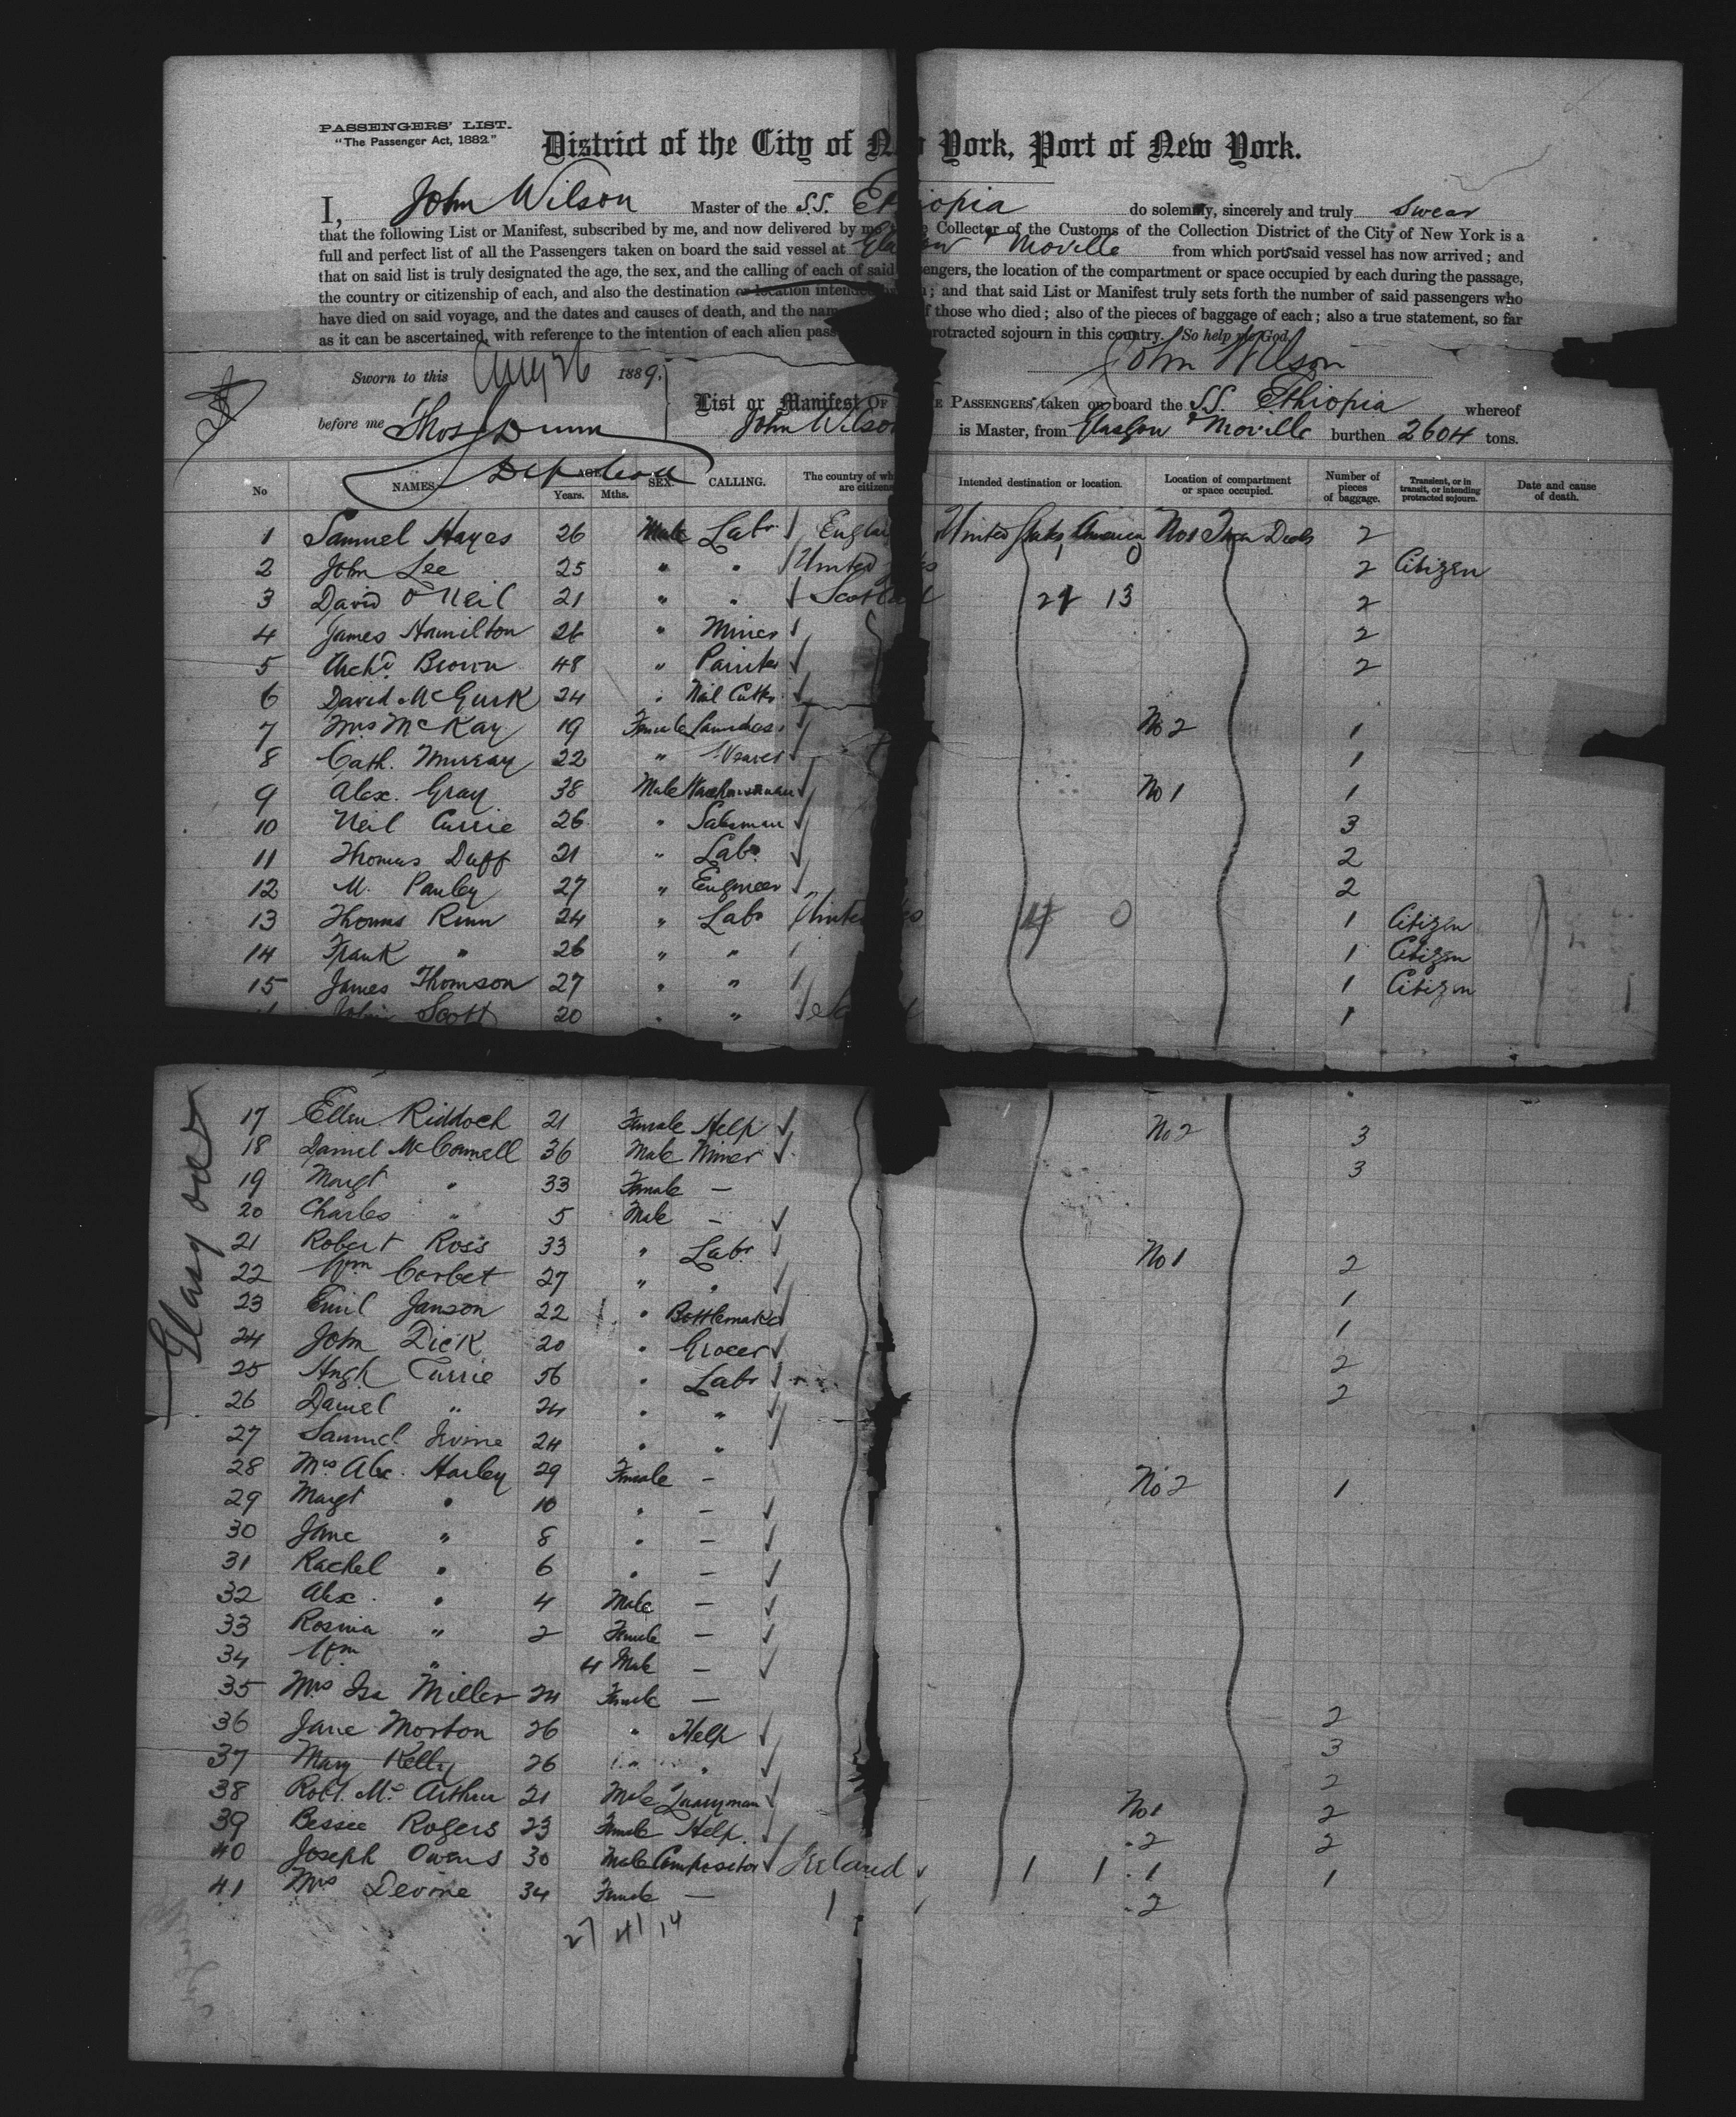 PASSENGERS' LIST.
"The Passenger Act, 1882."
District of the City of New York, Port of New York.
I, John Wilson Master of the S.S. Ethiopia do solemnly, sincerely and truly swear
that the following List or Manifest, subscribed by me, and now delivered by me Collector of the Customs of the Collection District of the City of New York is a
full and perfect list of all the Passengers taken on board the said vessel at Glasgow & Moville from which port said vessel has now arrived; and
that on said list is truly designated the age, the sex, and the calling of each of said engers, the location of the compartment or space occupied by each during the passage,
the country or citizenship of each, and also the destination or location intended ; and that said List or Manifest truly sets forth the number of said passengers who
have died on said voyage, and the dates and causes of death, and the nam f those who died; also of the pieces of baggage of each; also a true statement, so far
as it can be ascertained, with reference to the intention of each alien pass protracted sojourn in this country. So help me God.
John Wilson
Sworn to this Aug 26 1889,
List or Manifest OF E PASSENGERS taken on board the S.S. Ethiopia whereof
before me Thos Dunn
John Wilson is Master, from Glasgow & Moville burthen 2604 tons.
Dep
No NAMES. AGE. Years. Mths. SEX. CALLING. The country of wh are citizens Intended destination or location. Location of compartment or space occupied. Number of pieces of baggage. Transient, or in transit, or intending protracted sojourn. Date and cause of death.
1 Samuel Hayes 26 Male Labr England United States, America No 1 Deck 2
2 John Lee 25 " " United States 2 Citizen
3 David O'Neil 21 " " Scotland 21 13 2
4 James Hamilton 26 " Miner 2
5 Archd Brown 48 " Painter 2
6 David McGurk 24 " Nail Cutter
7 Mrs McKay 19 Female Laundress No 2 1
8 Cath. Murray 22 " Weaver 1
9 Alex. Gray 38 Male Warehouseman No 1 1
10 Neil Currie 26 " Salesman 3
11 Thomas Duff 21 " Labr 2
12 M. Pauley 27 " Engineer 2
13 Thomas Rinn 24 " Labr United States 4 0 1 Citizen
14 Frank " 26 " " 1 Citizen
15 James Thomson 27 " " 1 Citizen
John Scott 20 " " 1
Glasgow
17 Ellen Riddoch 21 Female Help No 2 3
18 Daniel McConnell 36 Male Miner 3
19 Margt " 33 Female —
20 Charles " 5 Male —
21 Robert Ross 33 " Labr No 1 2
22 Wm Corbet 27 " " 1
23 Emil Janson 22 " Bottlemaker 1
24 John Dick 20 " Grocer 2
25 Hugh Currie 56 " Labr 2
26 Daniel " 24 " "
27 Samuel Irvine 24 " "
28 Mrs Alex. Harley 29 Female — No 2 1
29 Margt " 10 " —
30 Jane " 8 " —
31 Rachel " 6 " —
32 Alex. " 4 Male —
33 Rosina " 2 Female —
34 Wm " 4 Male —
35 Mrs Isa Miller 24 Female — 2
36 Jane Morton 26 " Help 3
37 Mary Kelly 26 " " 2
38 Robt. McArthur 21 Male Quarryman No 1 2
39 Bessie Rogers 23 Female Help " 2 2
40 Joseph Owens 30 Male Compositor Ireland 1 1 " 1 1
41 Mrs Devine 34 Female — " 2
27 41 14